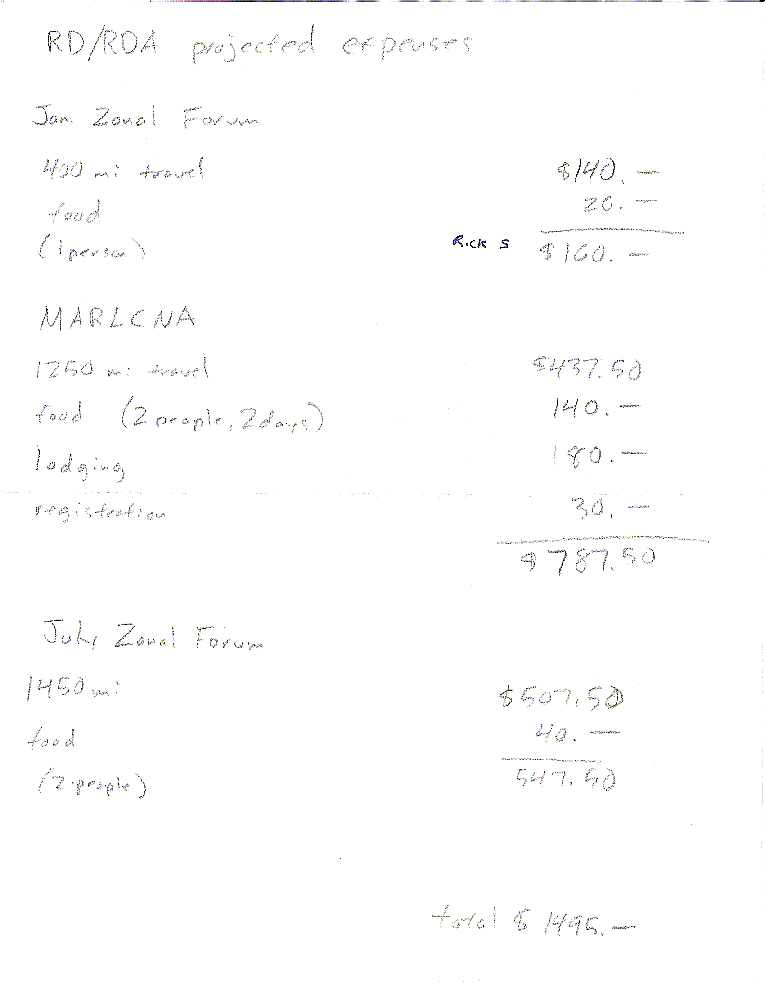 RD/RDA projected expenses
Jan. Zonal Forum
400 mi travel $140.—
food 20.—
(1 person) Rick S $160.—
MARLCNA
1250 mi travel $437.50
food (2 people, 2 days) 140.—
lodging 180.—
registration 30.—
$787.50
July Zonal Forum
1450 mi $507.50
food 40.—
(2 people) 547.50
total $1495.—